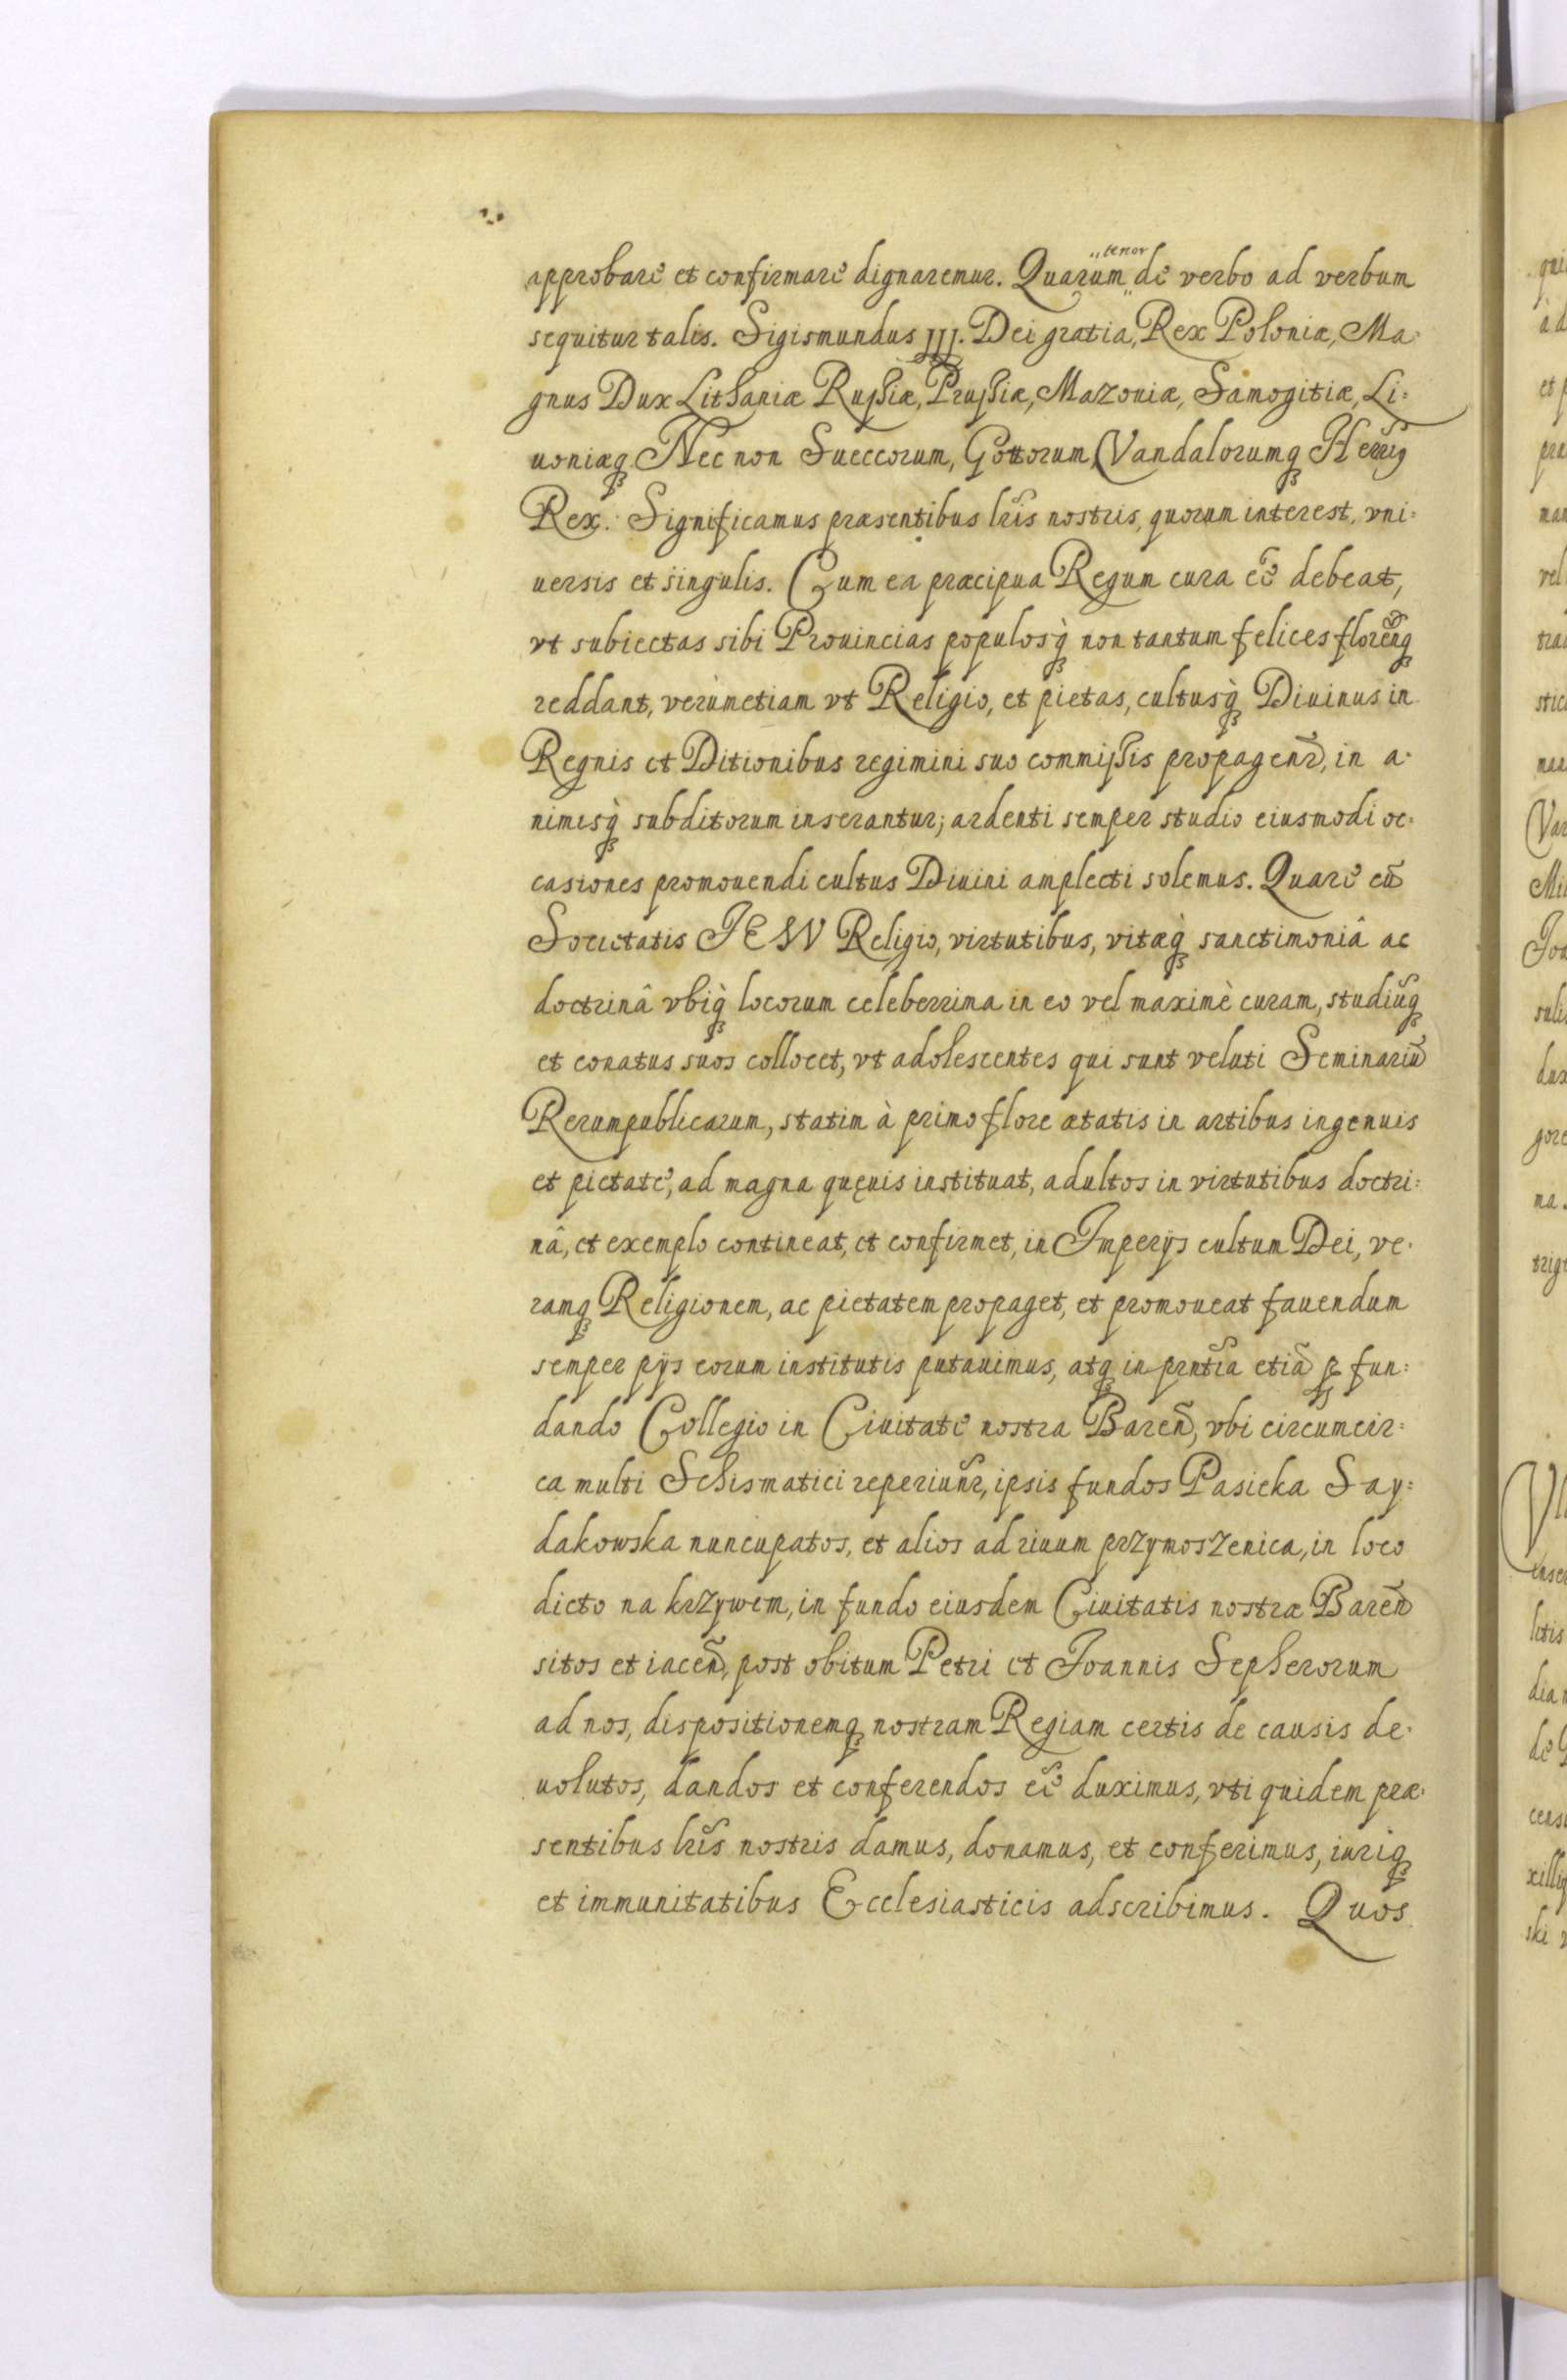 approbare et confirmare dignaremur. Quarum tenor de verbo ad verbum
sequitur talis. Sigismundus III. Dei gratia, Rex Poloniæ, Ma-
gnus Dux Lithaniæ Russiæ, Prussiæ, Mazouiæ, Samogitiæ, Li=
uoniæq̃ Nec non Sueccorum, Gottorum, Vandalorumq̃
Rex. Significamus præsentibus lr̃is nostris, quorum interest, vni=
uersis et singulis. Cum ea præcipua Regum cura eẽ debeat,
vt subiectas sibi Prouincias populosq̀ non tantum felices florẽnq̃
reddant, verùmetiam vt Religio, et pietas, cultusq̀ Diuinus in
Regnis et Ditionibus regimini suo commissis propagenr̃, in a-
nimisq̀ subditorum inserantur; ardenti semper studio eiusmodi oc-
casiones promouendi cultus Diuini amplecti solemus. Quare cũ
Societatis IESV Religio, virtutibus, vitæq̀ sanctimoniâ ac
doctrinâ vbiq̀ locorum celeberrima in eo vel maximè curam, studiũq̃
et conatus suos collocet, vt adolescentes qui sunt veluti Seminariũ
Rerumpublicarum, statim à primo flore ætatis in artibus ingenuis
et pietate, ad magna quęuis instituat, adultos in virtutibus doctri=
nâ, et exemplo contineat, et confirmet, in Imperijs cultum Dei, ve-
ramq̃ Religionem, ac pietatem propaget, et promoueat fauendum
semper pijs eorum institutis putauimus, atq̃ in prñtia etiã ꝓ fun=
dando Collegio in Ciuitate nostra Bareñ, vbi circumcir=
ca multi Schismatici reperiunr̃, ipsis fundos Pasieka Say=
dakowska nuncupatos, et alios ad riuum przymoszenica, in loco
dicto na krzywem, in fundo eiusdem Ciuitatis nostræ Bareñ
sitos et iaceñ, post obitum Petri et Joannis Sepherorum
ad nos, dispositionemq̃ nostram Regiam certis de causis de-
uolutos, dandos et conferendos eẽ duximus, vti quidem præ-
sentibus lr̃is nostris damus, donamus, et conferimus, iuriq̃
et immunitatibus Ecclesiasticis adscribimus. Quos